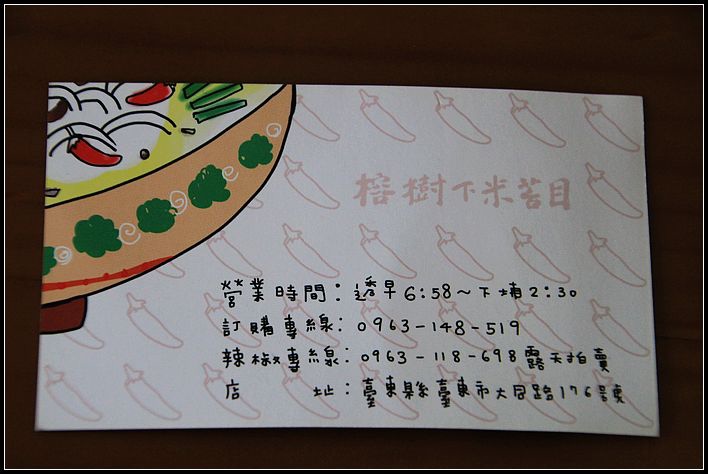 榕樹下米苔目
營業時間：透早6:58～下晡2:30
訂購專線：0963-148-519
辣椒專線：0963-118-698露天拍賣
店址：臺東縣臺東市大同路176號